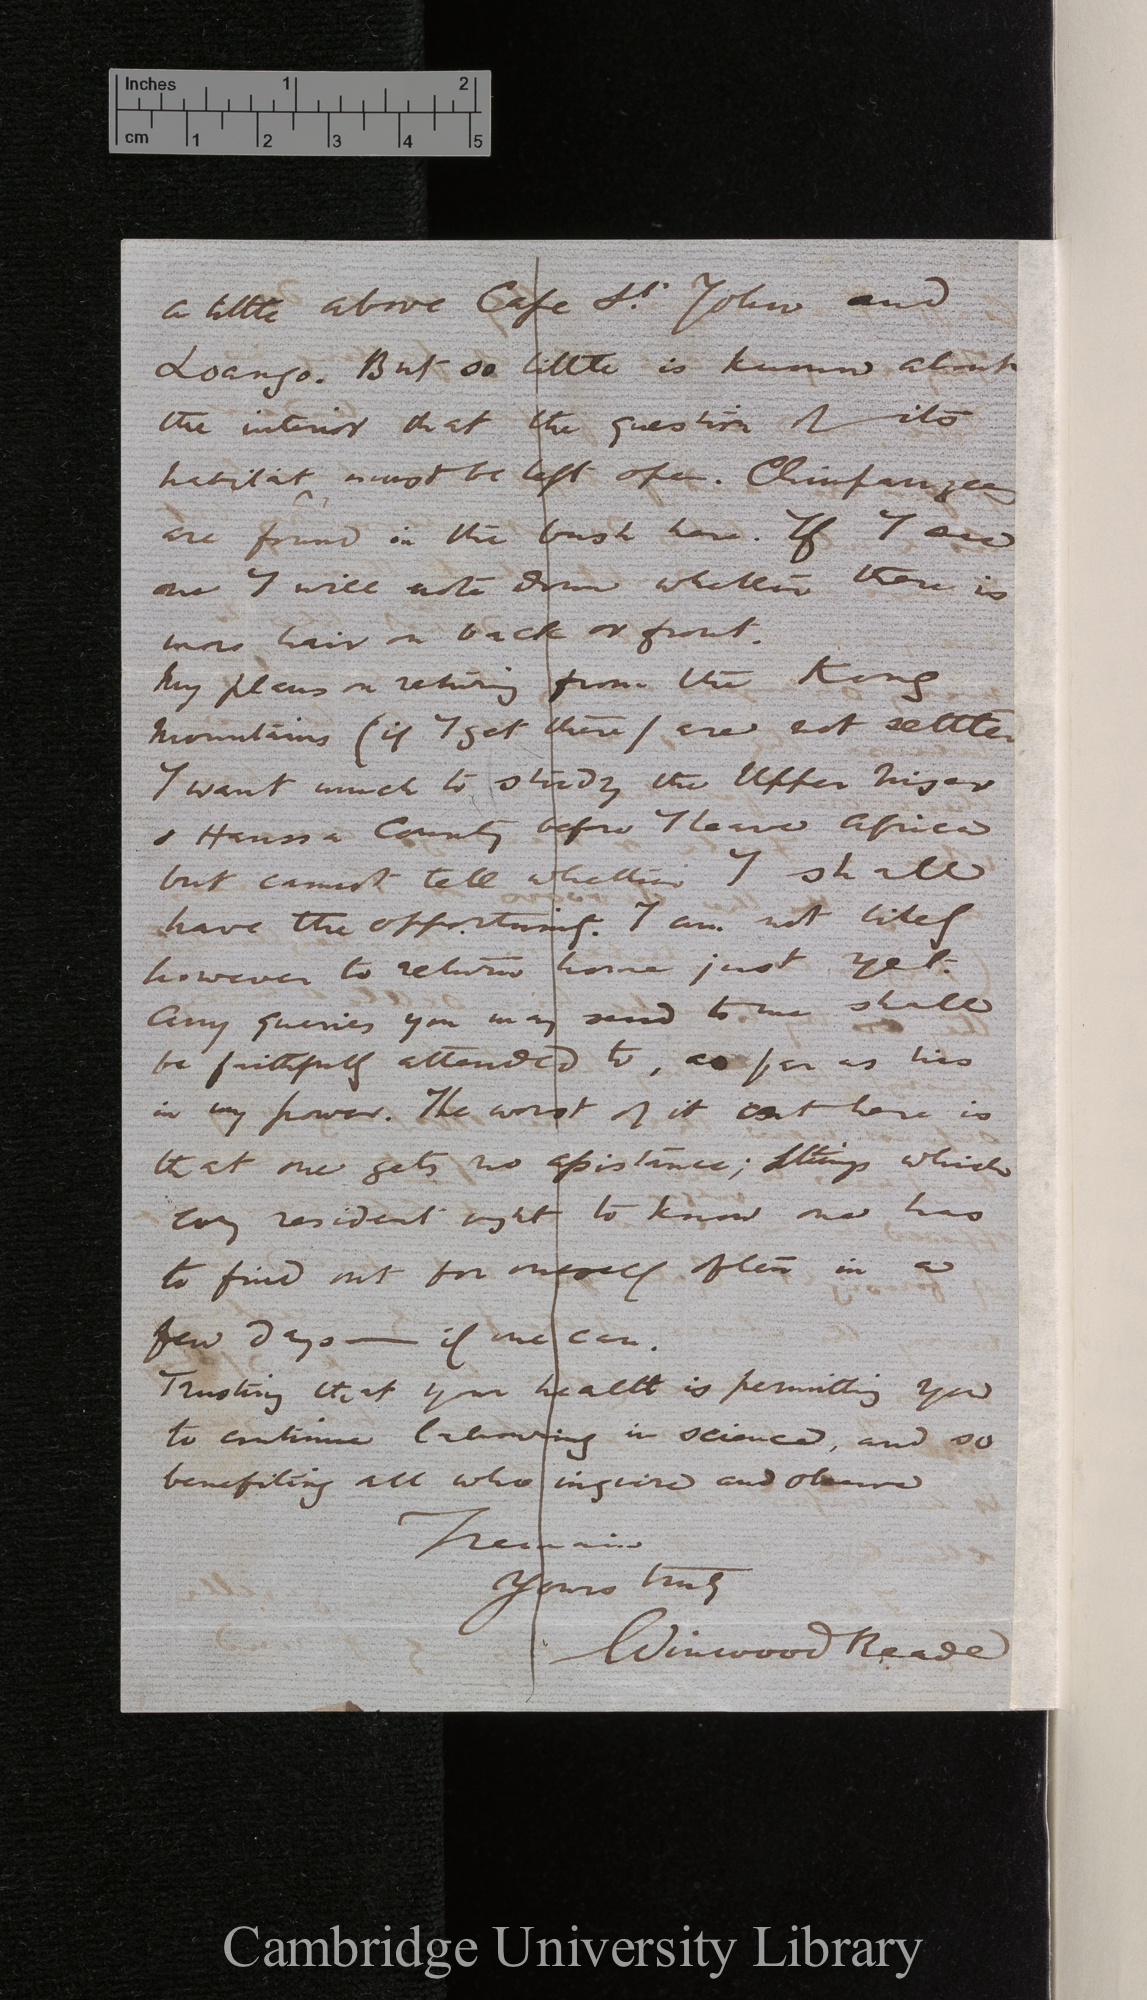 Inches 1 2
cm 1 2 3 4 5
a little above Cape St. John and
Loango. But so little is known about
the interior that the question of its
habitat must be left open. Chimpanzees
are found in the bush here. If I see
one I will note down whether there is
more hair on back or front.
My plans on returning from the Kong
Mountains (if I get there) are not settled
I want much to study the Upper Niger
& Haussa Country before I leave Africa
but cannot tell whether I shall
have the opportunity. I am not likely
however to return home just yet.
Any queries you may send to me shall
be faithfully attended to, as far as lies
in my power. The worst of it out here is
that one gets no assistance; things which
every resident ought to know one has
to find out for oneself often in a
few days — if one can.
Trusting that your health is permitting you
to continue labouring in science, and so
benefiting all who inquire and observe
I remain
Yours truly
Winwood Reade
Cambridge University Library